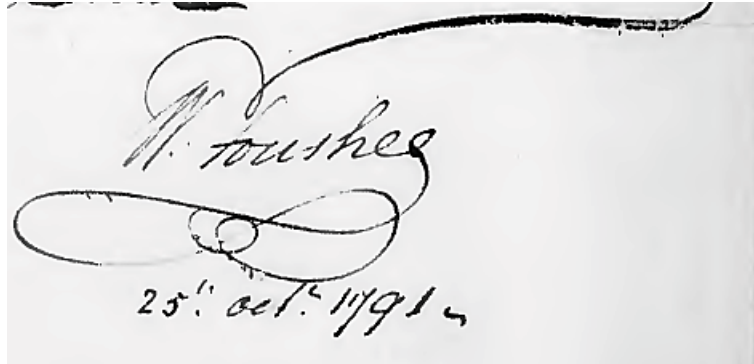 W. Foushee
25th. octr. 1791